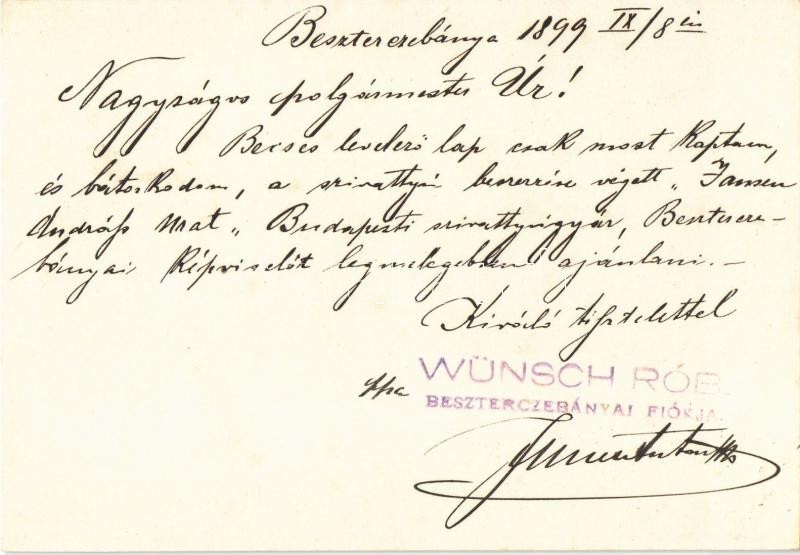 Beszterczebánya 1899 IX/8 én
Nagyságos polgármester Úr!
Becses levelező lap csak most kaptam,
és bátorkodom, a szivattyú beszerzése végett „Jansen
András " Budapesti szivattyúgyár, Besztercze-
bányai képviselőt legmelegebben ajánlani.-
Kiváló tisztelettel
ppa WÜNSCH RÓB.
BESZTERCZEBÁNYAI FIÓKJA.